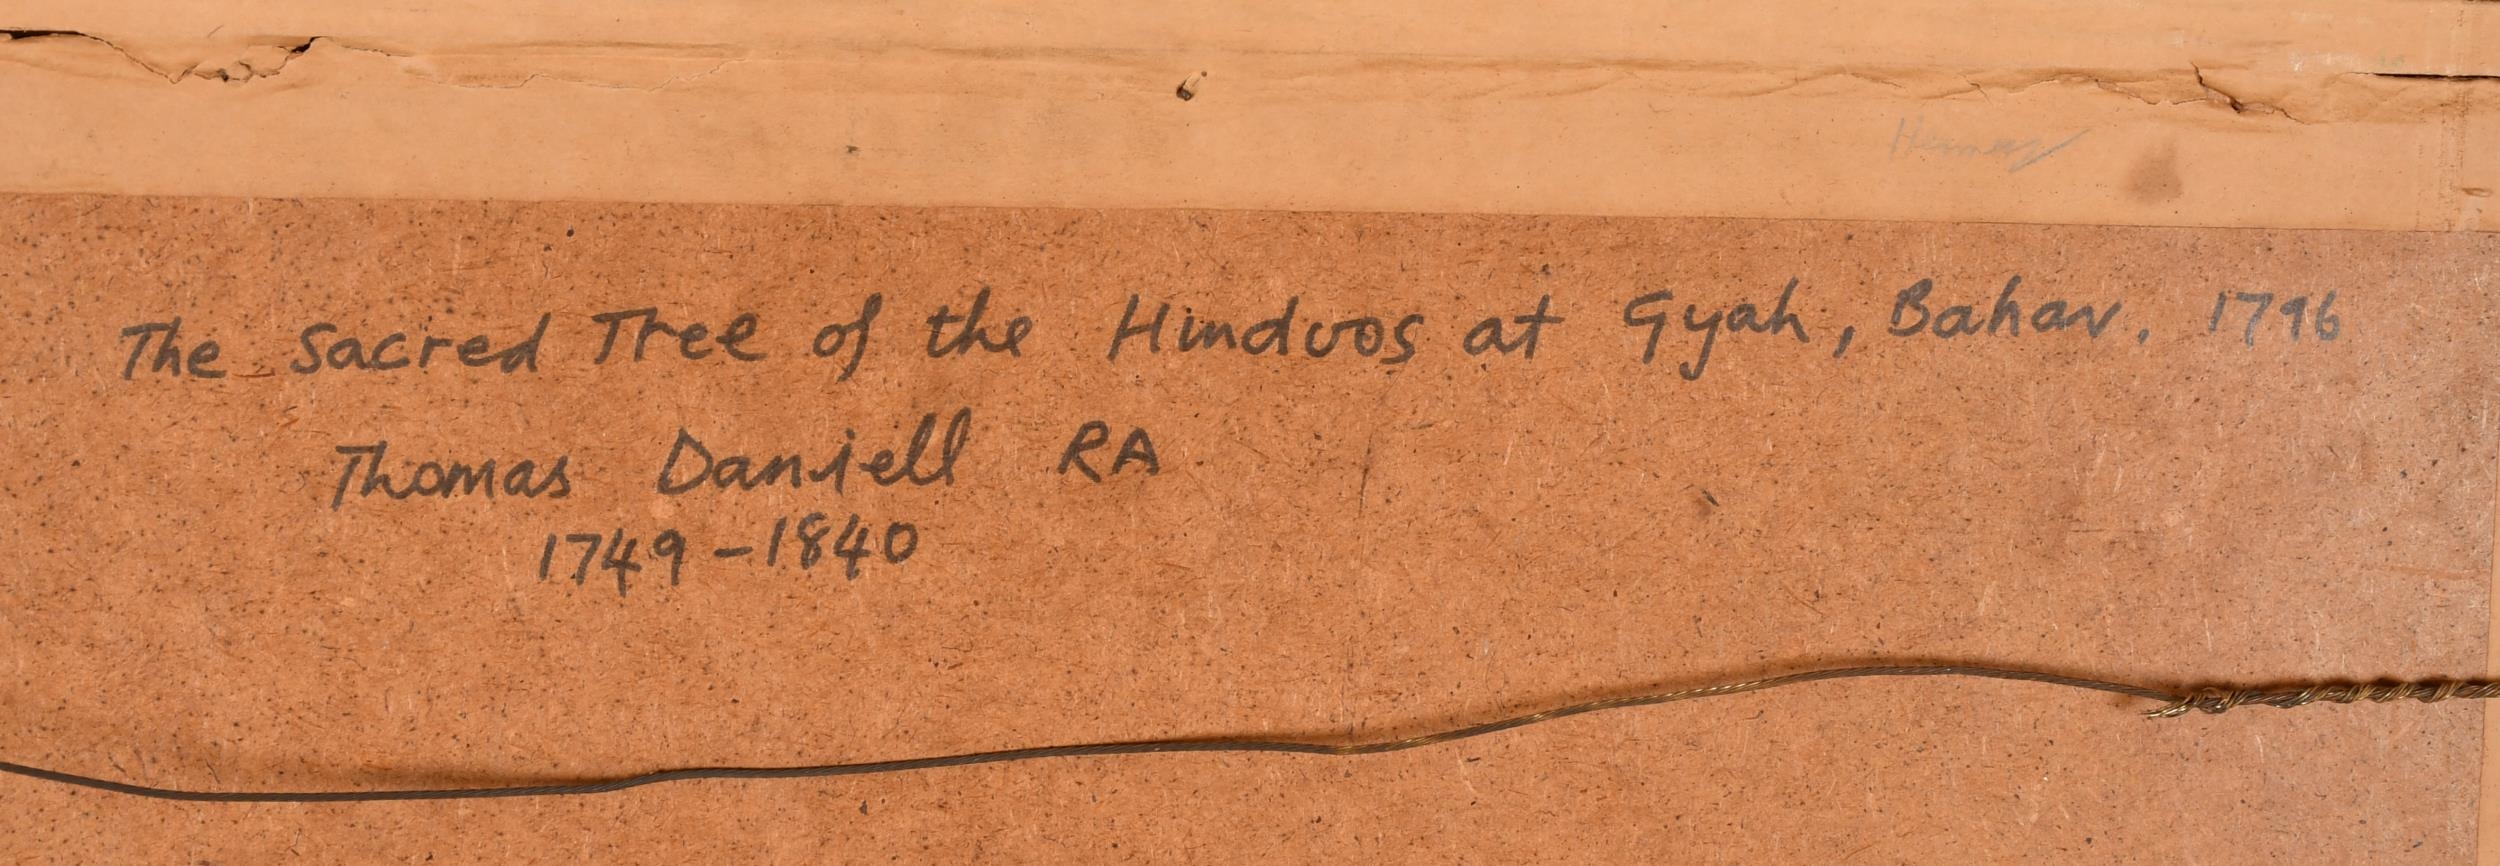 The Sacred Tree of the Hindoos at Gyah, Bahar. 1796
Thomas Daniell RA
1749-1840